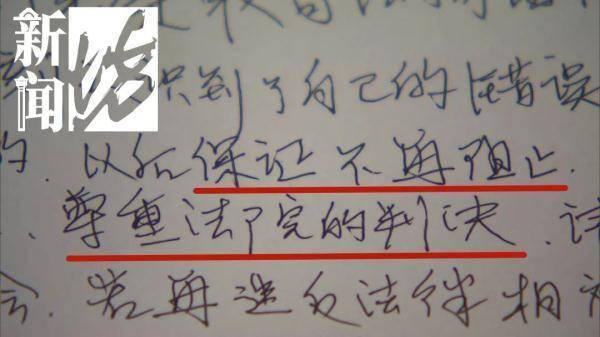 新闻
识到了自己的错误
的.以后保证不再阻止.
尊重法院的判决.
会.若再违反法律相